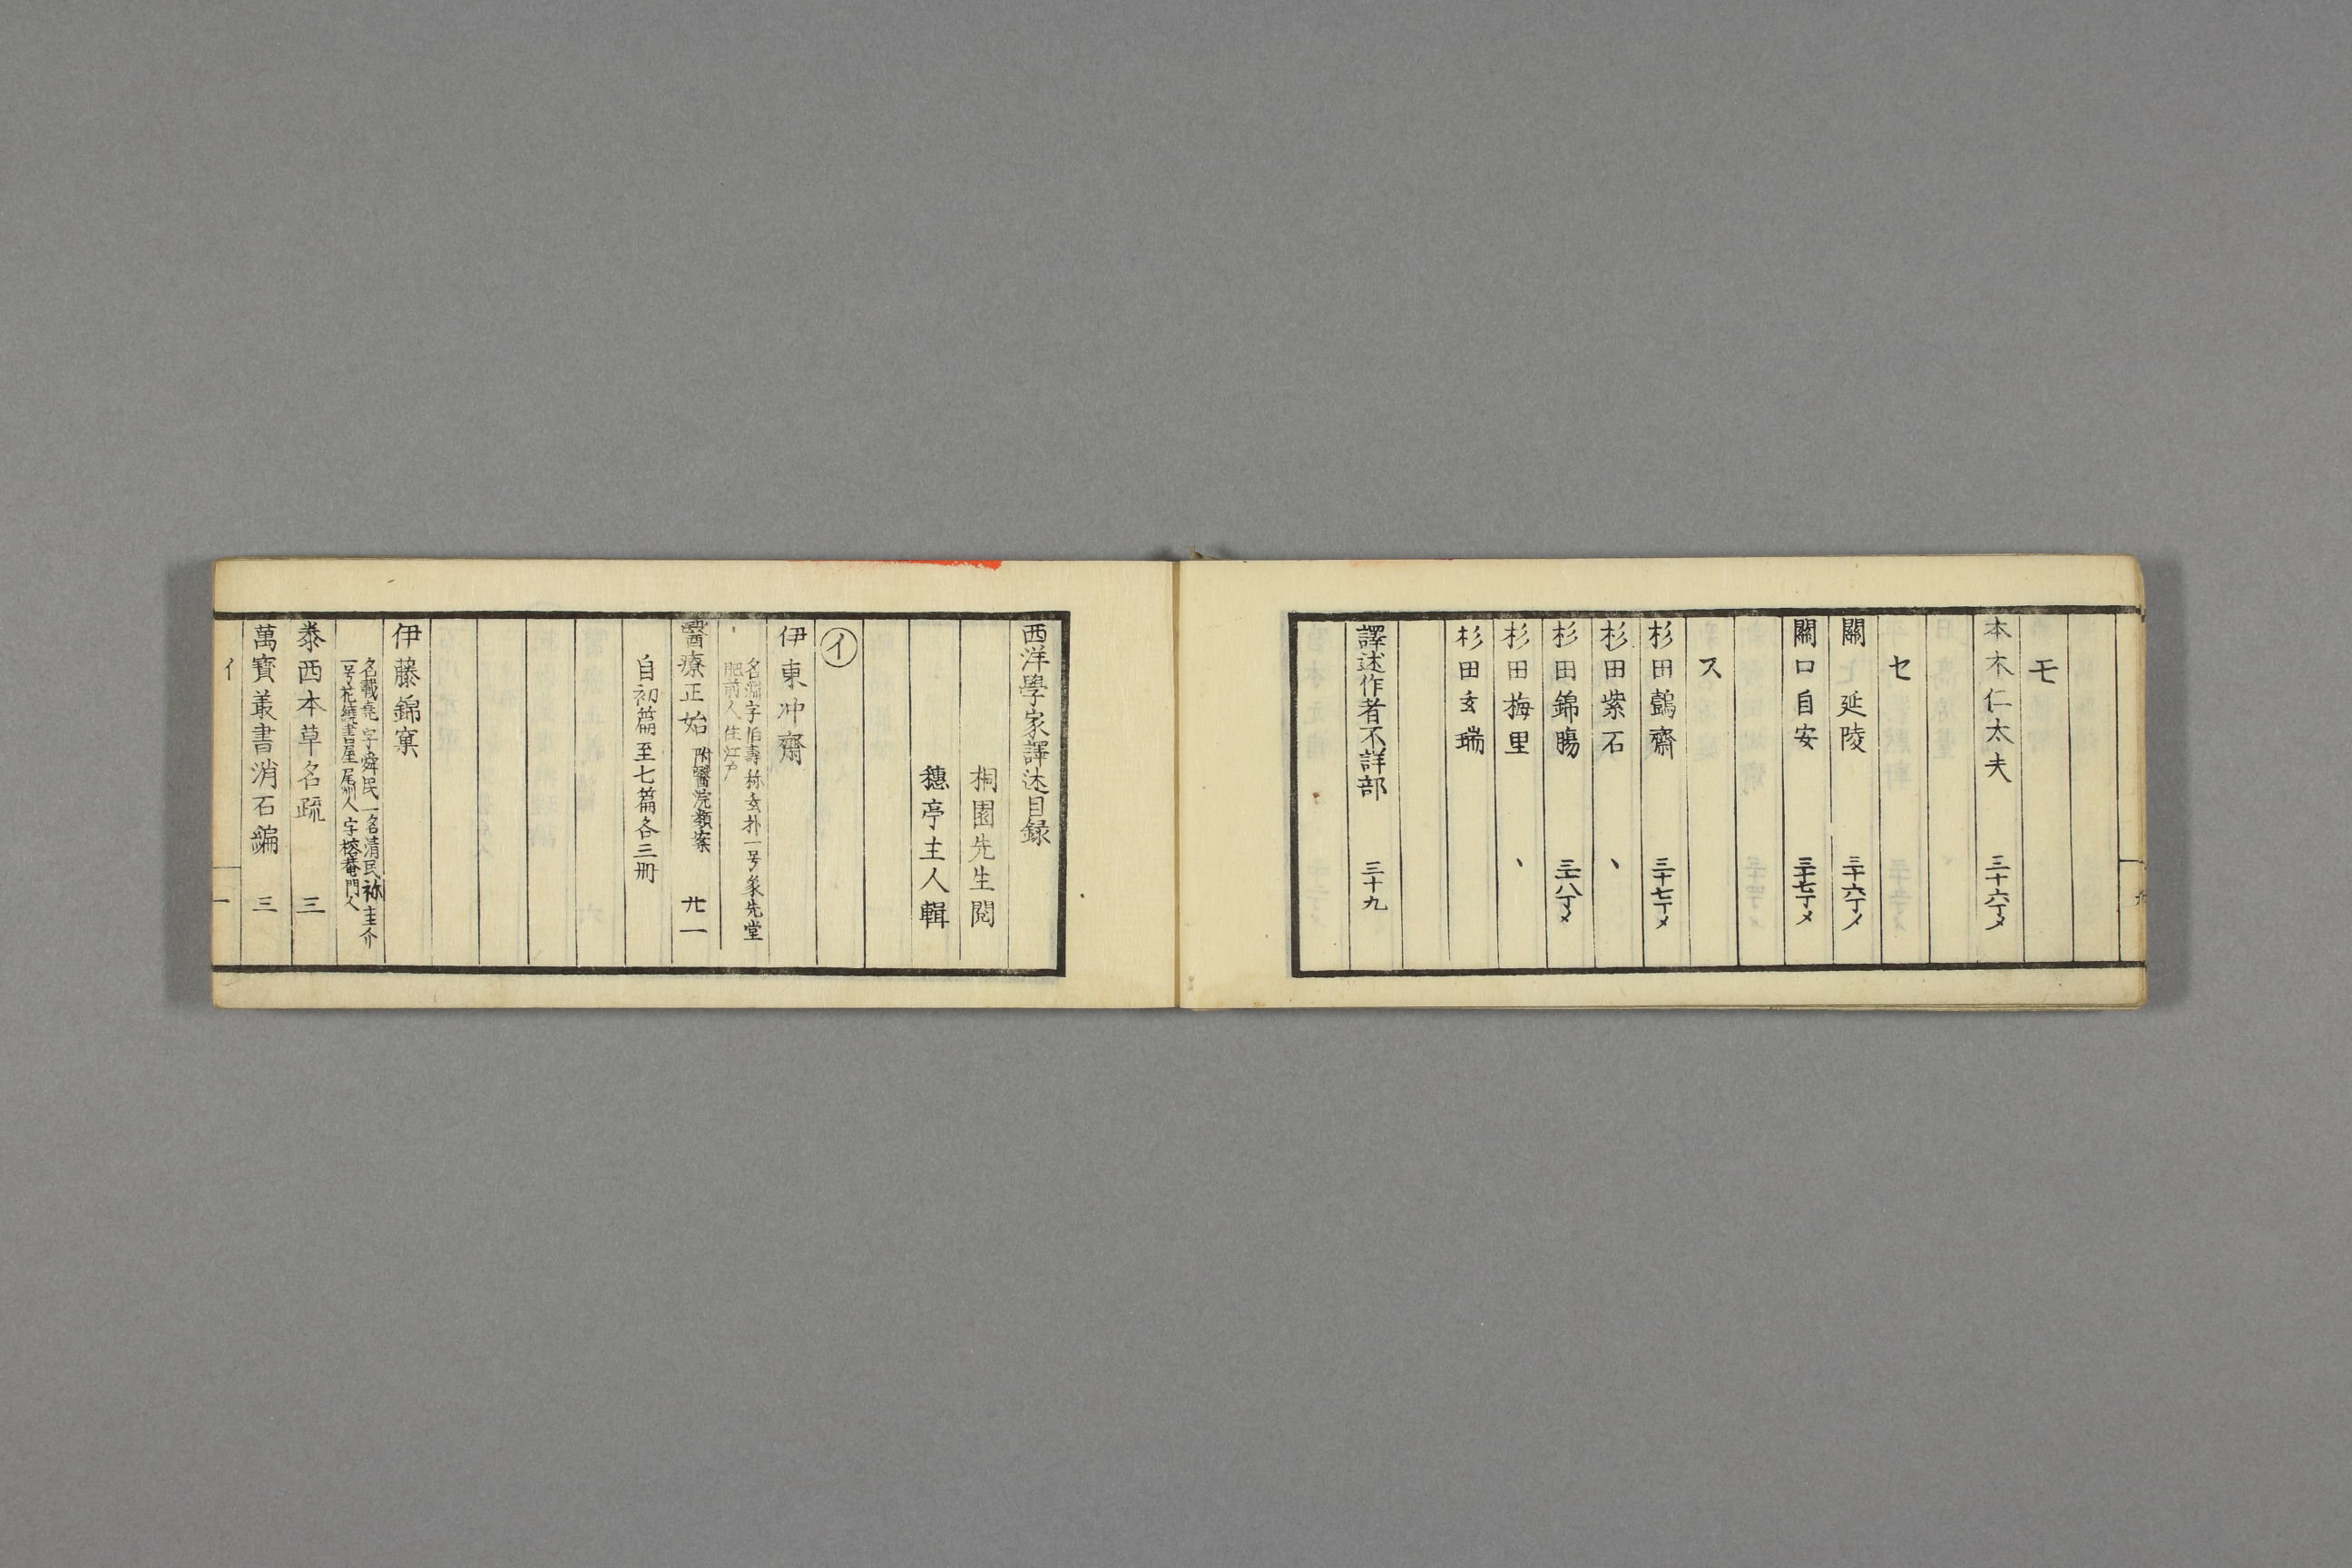 モ
本木仁太夫 三十六丁メ
セ
關 延陵 三十六丁メ
關口自安 三十七丁メ
ス
杉田鷧齋 三十七丁メ
杉田紫石 〻
杉田錦腸 三十八丁メ
杉田梅里 〻
杉田玄瑞
譯述作者不詳部 三十九
西洋學家譯述目録
桐園先生閲
穗亭主人輯
イ
伊東冲齋
名淵字伯壽称玄朴一号象先堂
肥前人住江戸
醫療正始 附醫院類案 廿一
自初篇至七篇各三冊
伊藤錦窠
名載堯字舜民一名清民称圭介
一号花繞書屋尾州人宇榕菴門人
泰西本草名疏 三
萬寳叢書消石編 三
イ 一